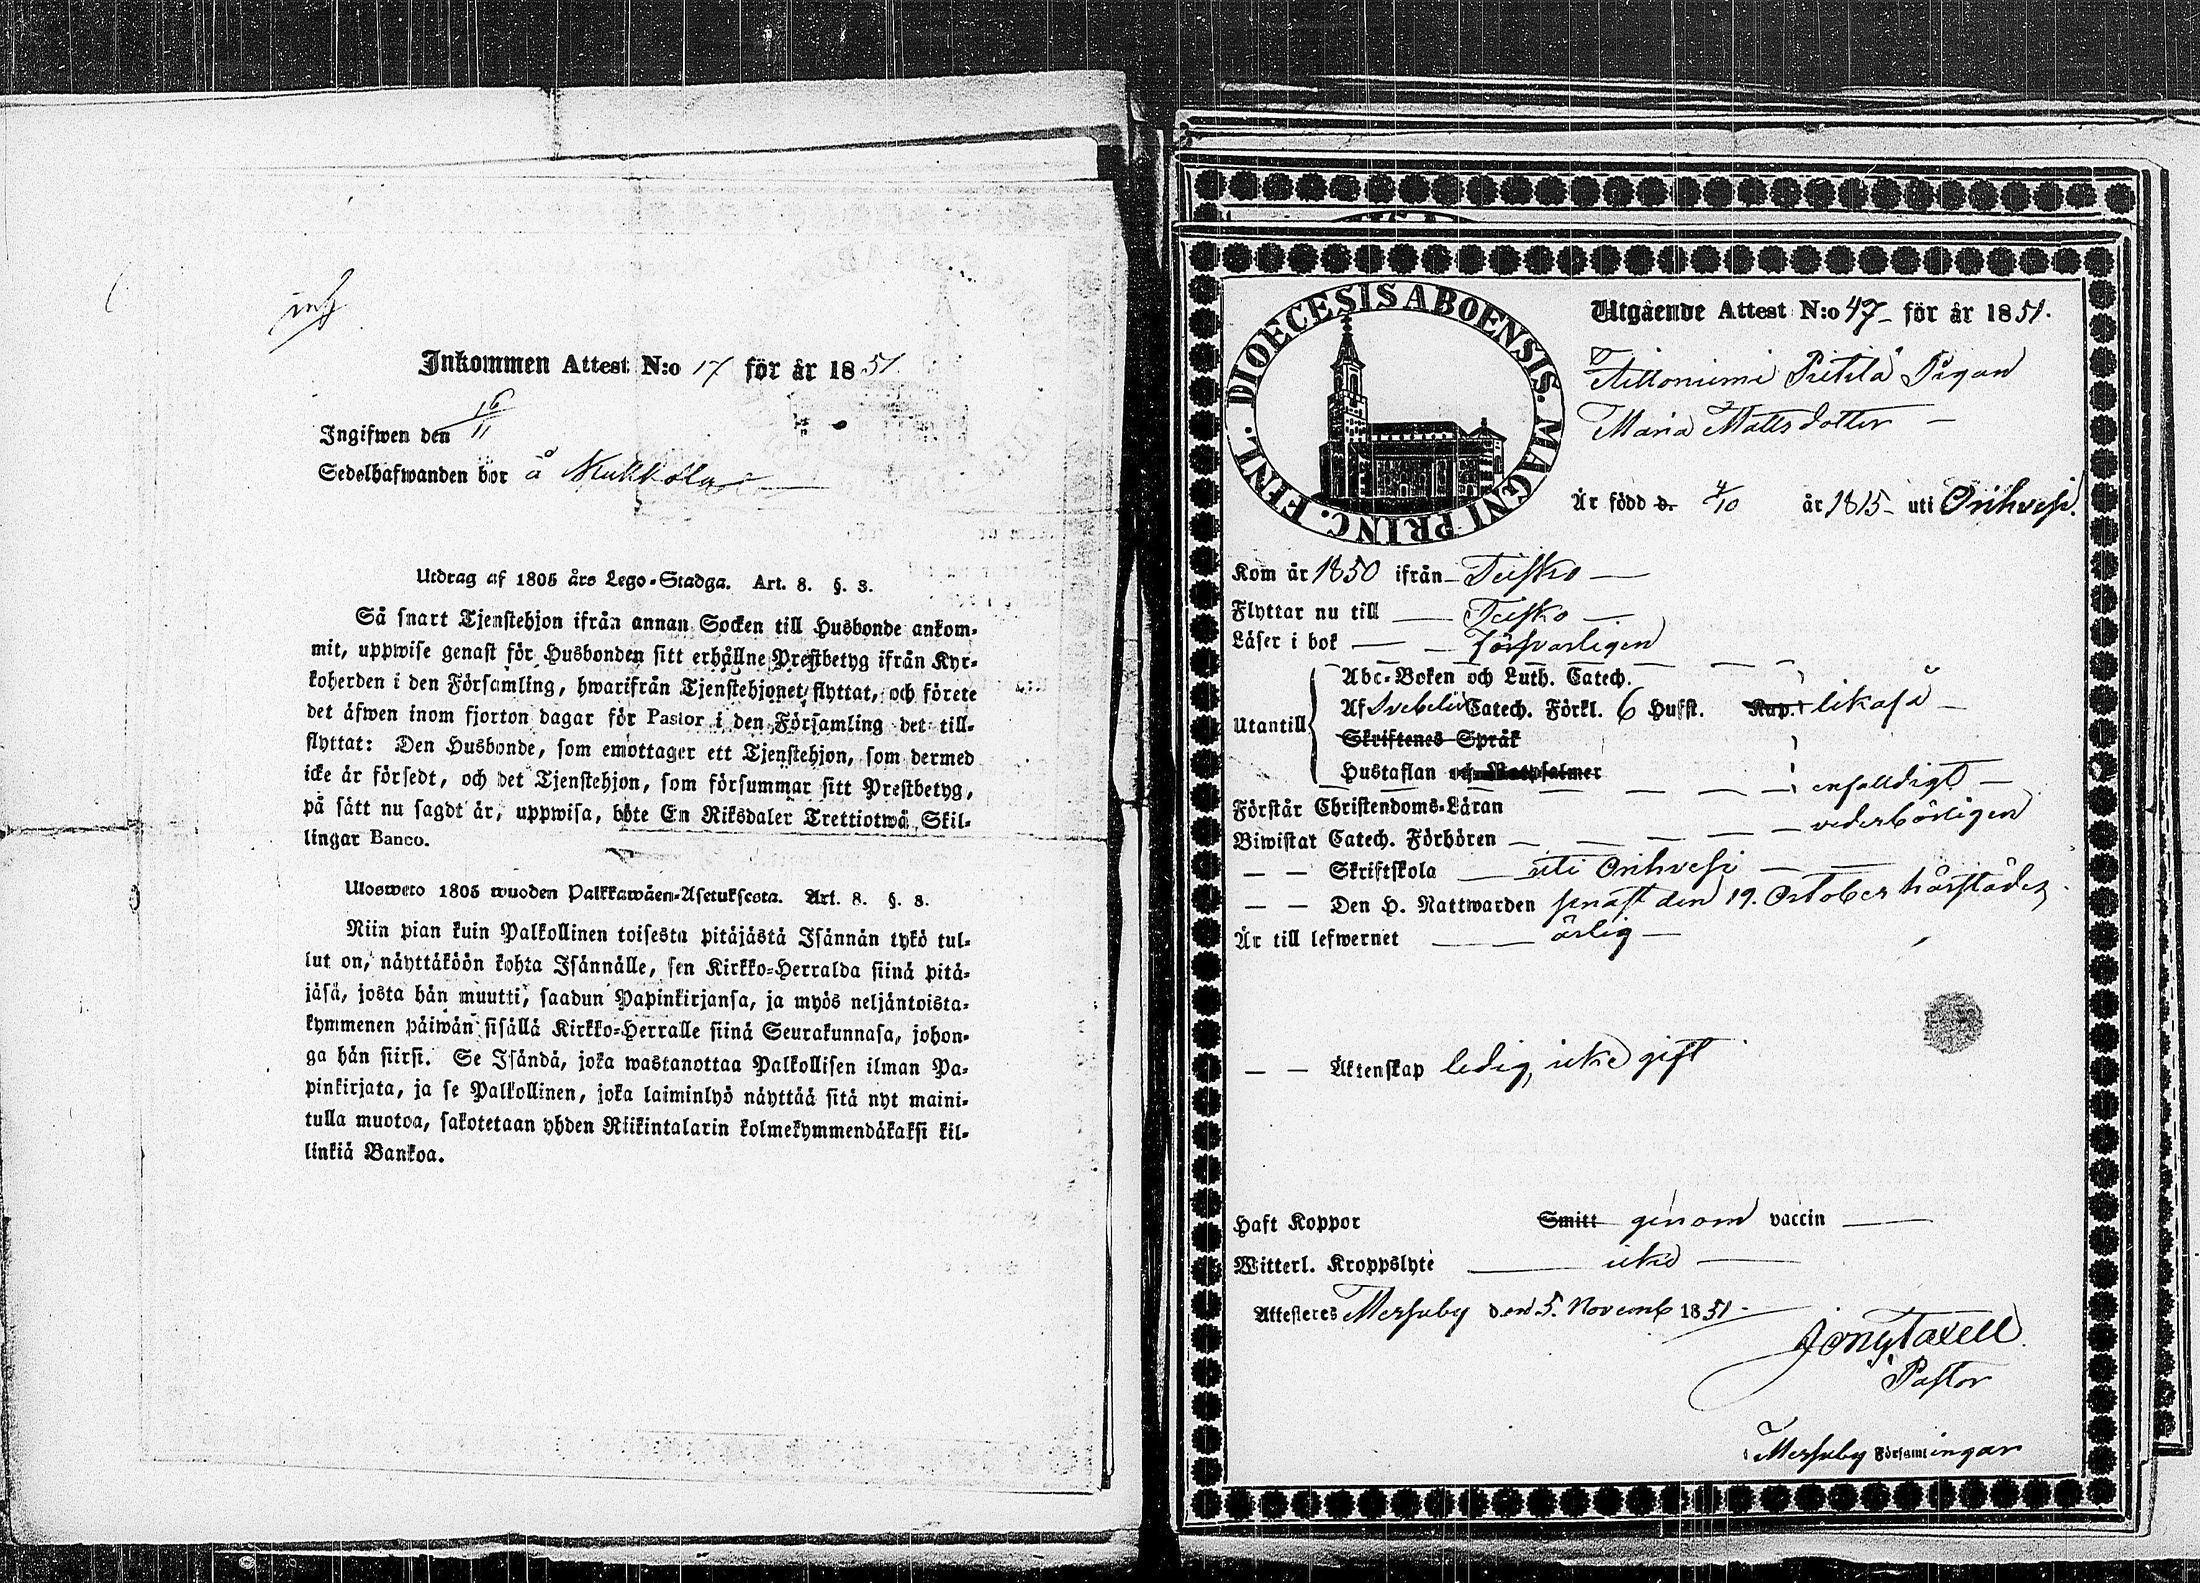 inf
Inkommen Attest N:o 17 för år 1851.
Ingifwen den 16/11
Sedelhafwanden bor å Kukkola
Utdrag af 1805 års Lego-Stadga. Art. 8. §. 3.
Så snart Tjenstehjon ifrån annan Socken till Husbonde ankom-
mit, uppwise genast för Husbonden sitt erhållne Prestbetyg ifrån Kyr-
koherden i den Församling, hwarifrån Tjenstehjonet flyttat, och förete
det äfwen inom fjorton dagar för Pastor i den Församling det till-
flyttat: Den Husbonde, som emottager ett Tjenstehjon, som dermed
icke är försedt, och det Tjenstehjon, som försummar sitt Prestbetyg,
på sätt nu sagdt är, uppwisa, böte En Riksdaler Trettiotwå Skil-
lingar Banco.
Ulosweto 1805 wuoden Palkkawäen-Asetuksesta. Art. 8. §. 3.
Niin pian kuin Palkollinen toisesta pitäjästä Isännän tykö tul-
lut on, näyttäköön kohta Isännälle, sen Kirkko-Herralda siinä pitä-
jäsä, josta hän muutti, saadun Papinkirjansa, ja myös neljäntoista-
kymmenen päiwän sisällä Kirkko-Herralle siinä Seurakunnasa, johon-
ga hän siirsi. Se Isändä, joka wastanottaa Palkollisen ilman Pa-
pinkirjata, ja se Palkollinen, joka laiminlyö näyttää sitä nyt maini-
tulla muotoa, sakotetaan yhden Riikintalarin kolmekymmendäkaksi kil-
linkiä Bankoa.
DIOECESIS ABOENSIS. MAGNI PRINC. FINL.
Utgående Attest N:o 47 för år 1851.
Aittoniemi Pietilä Pigan
Maria Mattsdotter
Är född d. 4/10 år 1815 uti Orihvesi.
Kom år 1850 ifrån Teisko
Flyttar nu till Teisko
Läser i bok försvarligen
Utantill
Abc-Boken och Luth. Catech.
Af Svebelii Catech. Förkl. 6 Hufst. Kap. likaså
Skriftenes Språk
Hustaflan och Botpsalmer
Förstår Christendoms-Läran enfalldigt
Biwistat Catech. Förhören vederbörligen
Skriftskola uti Orihvesi
Den H. Nattwarden senast den 19. October härstädes
Är till lefwernet ärlig
Äktenskap ledig, icke gift
Haft Koppor Smitt genom vaccin
Witterl. Kroppslyte icke
Attesteres Messuby den 5. Novemb 1851
Jon. Taxell
Pastor
i Messuby Församlingar